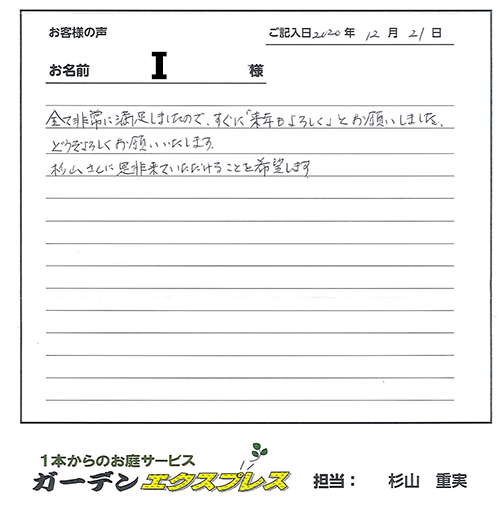 お客様の声
ご記入日2020年 12月 21日
お名前 I 様
全て非常に満足しましたので、すぐに「来年もよろしく」とお願いしました。
どうぞよろしくお願いいたします。
杉山さんに是非来ていただけることを希望します
1本からのお庭サービス
ガーデンエクスプレス 担当： 杉山 重実